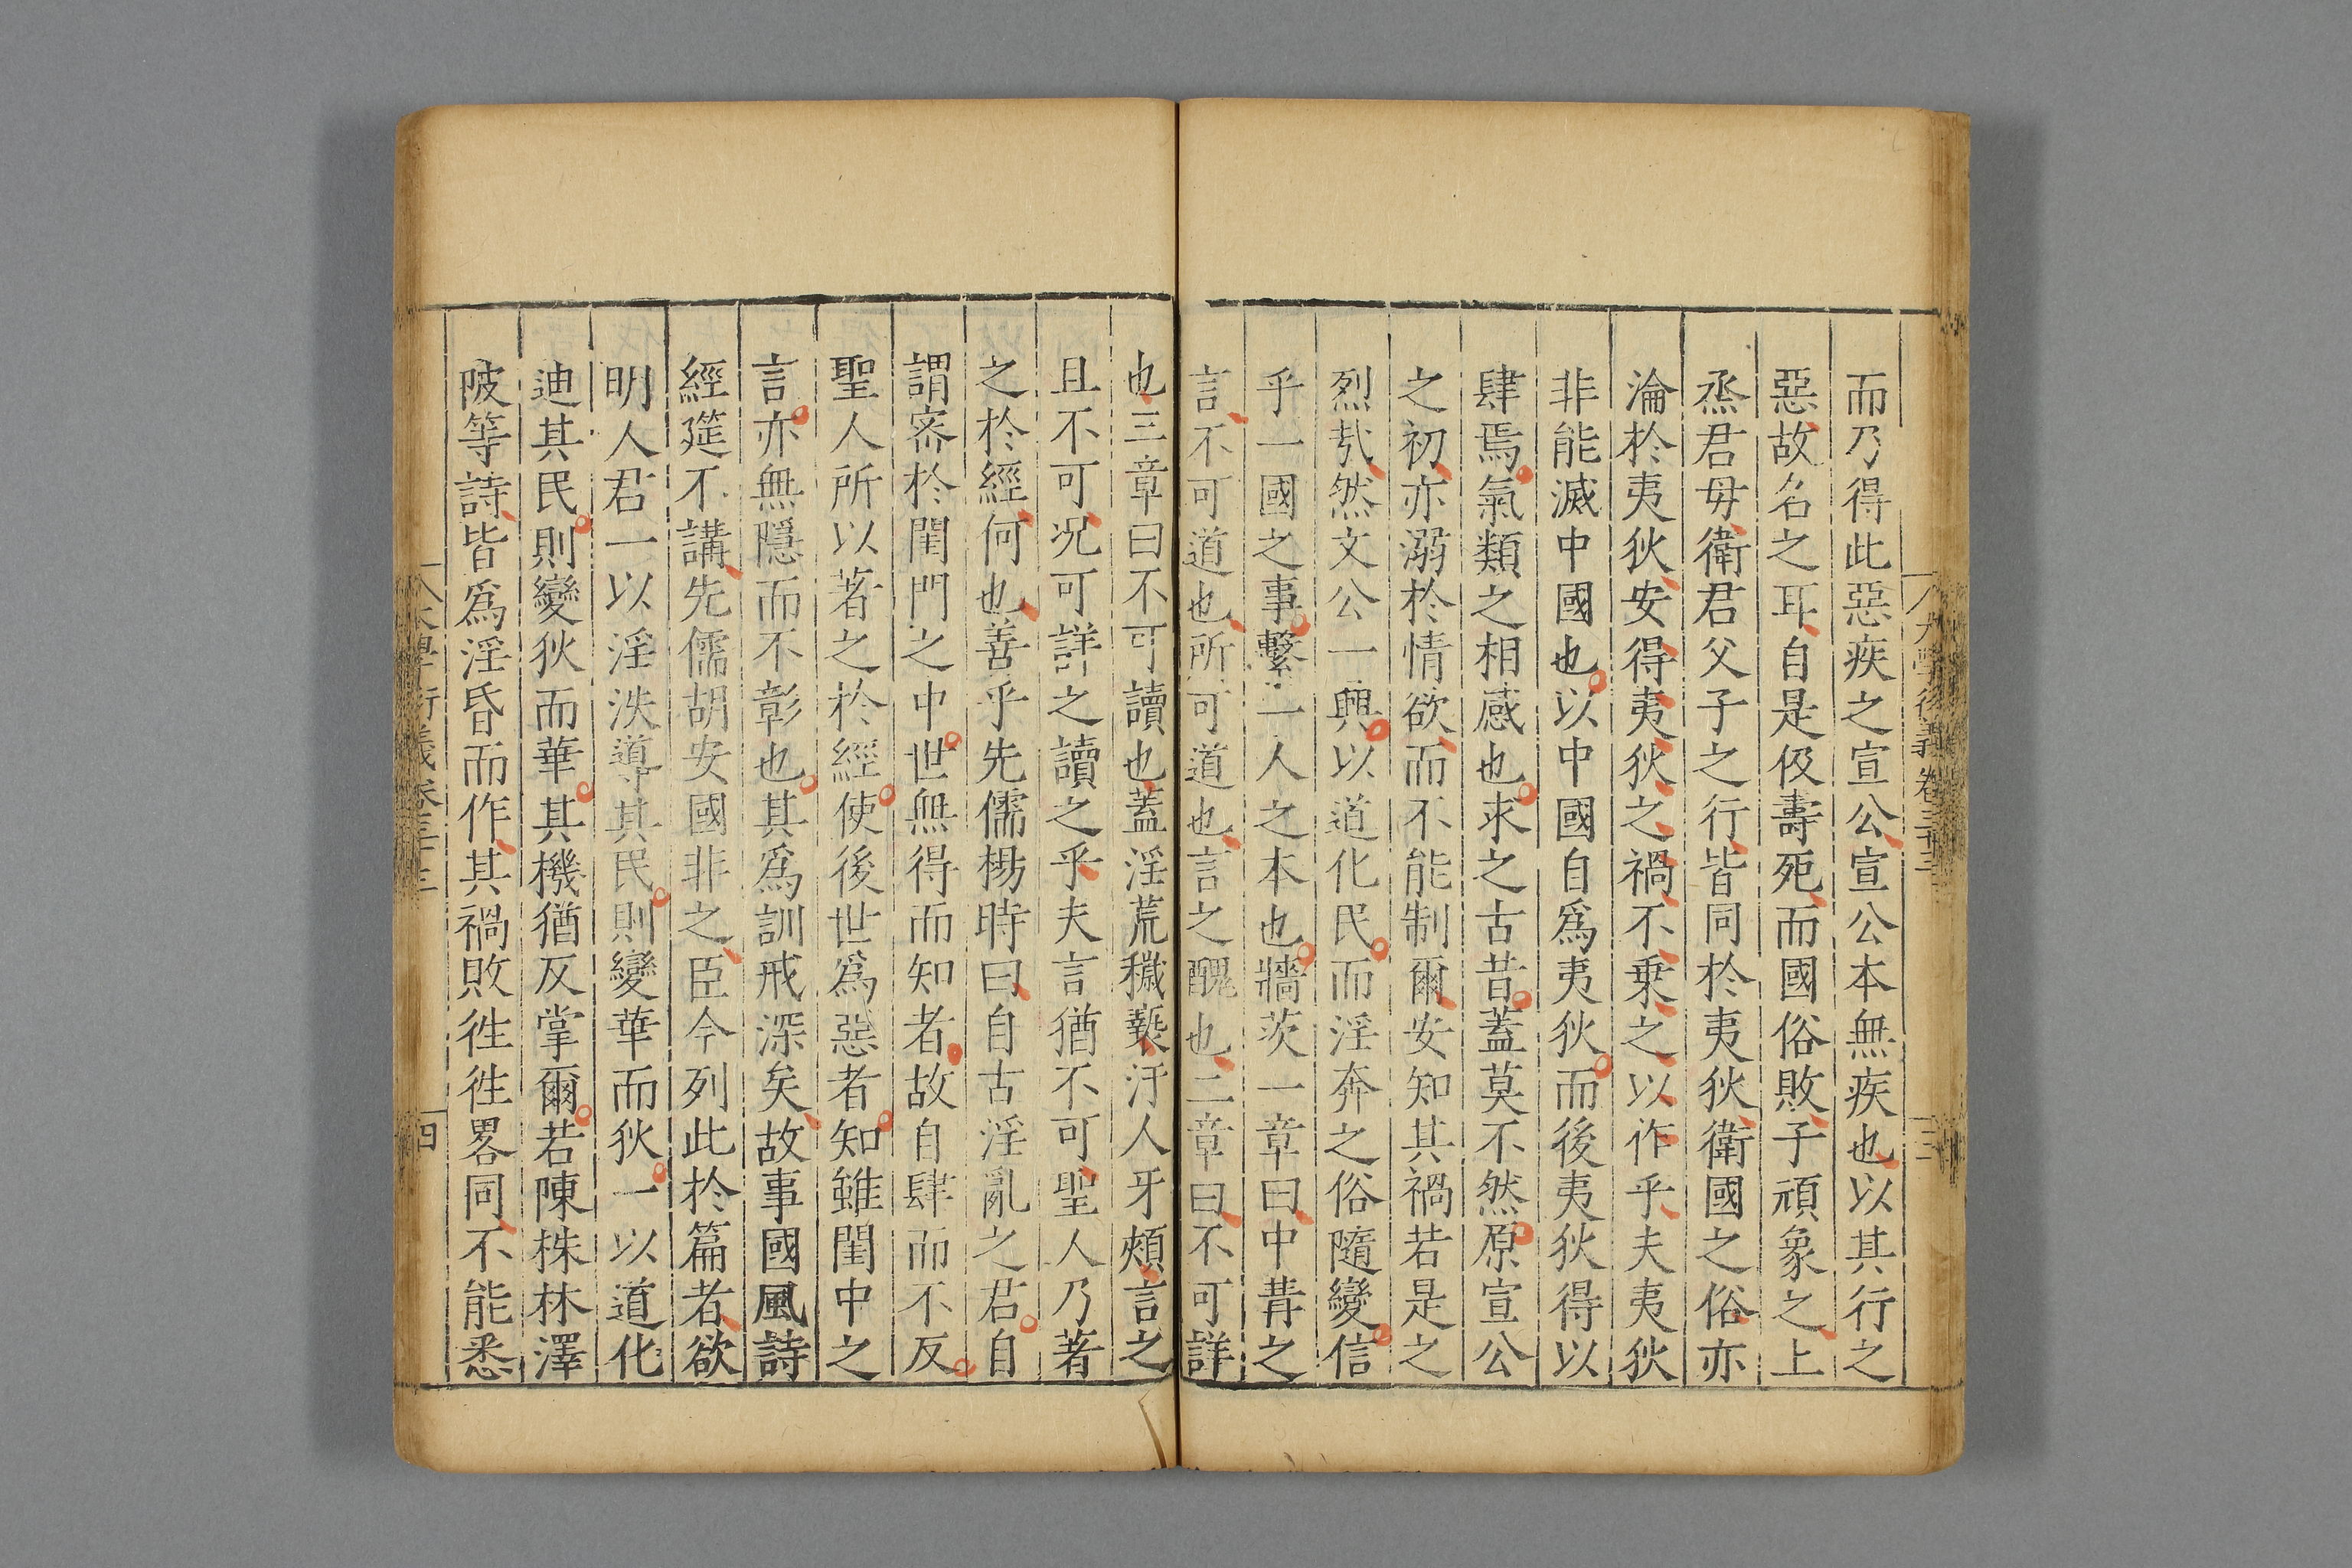 而乃得此惡疾之宣公宣公本無疾也以其行之
惡故名之耳自是伋壽死而國俗敗子頑象之上
烝君母衛君父子之行皆同於夷狄衛國之俗亦
淪於夷狄安得夷狄之禍不乗之以作乎夫夷狄
非能滅中國也以中國自爲夷狄而後夷狄得以
肆焉氣類之相感也求之古昔蓋莫不然原宣公
之初亦溺於情欲而不能制爾安知其禍若是之
烈㢤然文公一興以道化民而淫奔之俗隨變信
乎一國之事繫一人之本也牆茨一章曰中冓之
言不可道也所可道也言之醜也二章曰不可詳
也三章曰不可讀也蓋淫荒穢䙝汙人牙頰言之
且不可况可詳之讀之乎夫言猶不可聖人乃著
之於經何也善乎先儒楊時曰自古淫亂之君自
謂宻於閨門之中世無得而知者故自肆而不反
聖人所以著之於經使後世爲惡者知雖閨中之
言亦無隱而不彰也其爲訓戒深矣故事國風詩
經筵不講先儒胡安國非之臣今列此於篇者欲
明人君一以淫泆導其民則變華而狄一以道化
迪其民則變狄而華其機猶反掌爾若陳株林澤
陂等詩皆爲淫昏而作其禍敗徃徃畧同不能悉
大學衍義卷三十三
四